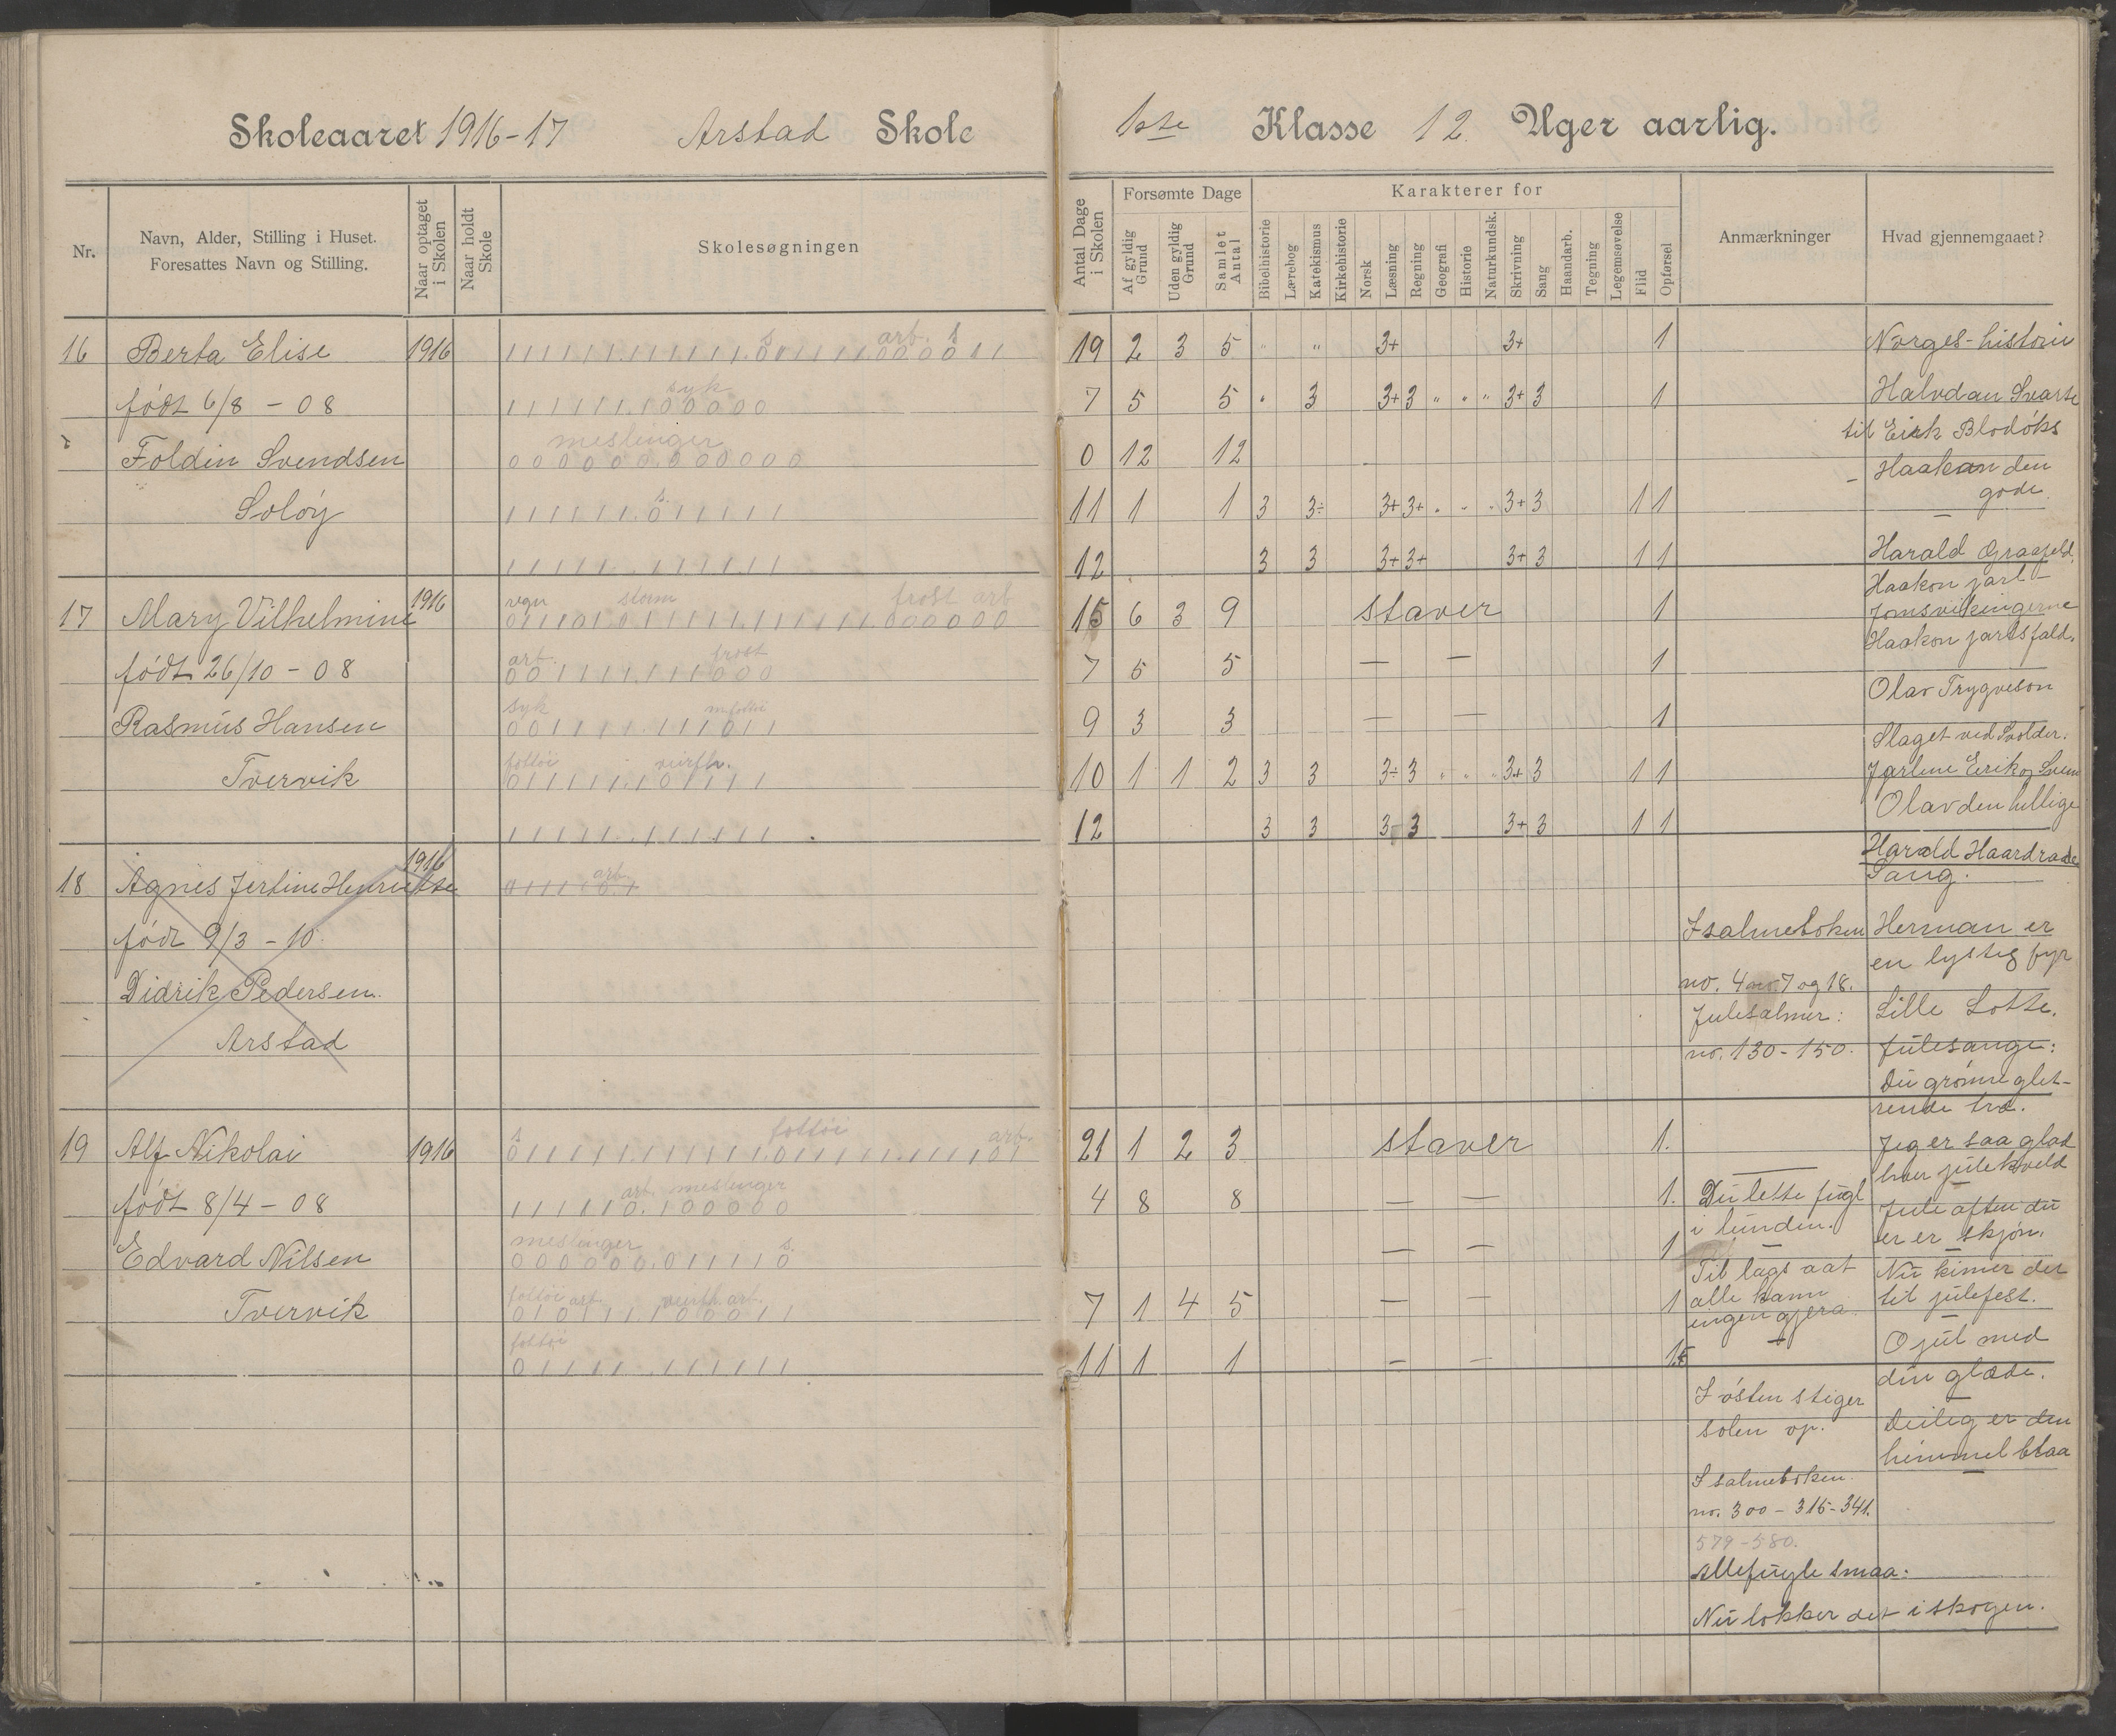 Skoleaaret 1916-17 Arstad Skole
1ste Klasse 12 Uger aarlig.
Nr.
Navn, Alder, Stilling i Huset.
Foresattes Navn og Stilling.
Naar optaget i Skolen
Naar holdt Skole
Skolesøgningen
Antal Dage i Skolen
Forsømte Dage
Af gyldig Grund
Uden gyldig Grund
Samlet Antal
Karakterer for
Bibelhistorie
Lærebog
Katekismus
Kirkehistorie
Norsk
Læsning
Regning
Geografi
Historie
Naturkundsk.
Skrivning
Sang
Haandarb.
Tegning
Legemsøvelse
Flid
Opførsel
Anmærkninger
Hvad gjennemgaaet?
16 Berta Elise 1916
født 6/8 - 08
Foldin Svendsen
Soløy
s arb. s
syk
meslinger
s.
19 2 3 5 " " 3+ 3+ 1
7 5 5 " 3 3+ 3 " " " 3+ 3 1
0 12 12
11 1 1 3 3÷ 3+ 3+ " " " 3+ 3 1 1
12 3 3 3+ 3+ 3+ 3 1 1
17 Mary Vilhelmine 1916
født 26/10 - 08
Rasmus Hansen
Tvervik
regn storm frost arb
arb. frost
syk m fottøi
fottøi
15 6 3 9 staver 1
7 5 5 — — 1
9 3 3 — — 1
10 1 1 2 3 3 3÷ 3 " " " 3+ 3 1 1
12 3 3 3 3 3+ 3 1 1
18 Agnes Jertine Henriette 1916
født 9/3 - 10
Didrik Pedersen.
Arstad
arb.
19 Alf Nikolai 1916
født 8/4 - 08
Edvard Nilsen
Tvervik
s fottøi arb.
arb. meslinger
meslinger s.
fottøi arb. arb.
fottøi
21 1 2 3 staver 1.
4 8 8 — — 1.
— — 1
7 1 4 5 — — 1
11 1 1 — — 1
I salmeboken
no. 4 no. 7 og 18.
Julesalmer:
no. 130-150.
Du lette fugl
i lunden.
Til lags aat
alle kann
ingen gjera.
I østen stiger
solen op.
I salmeboken.
no. 300 - 316-341.
579-580.
Alle fugle smaa.
Nu lokker det i skogen.
Norges-historie
Halvdan Svarte
til Eirik Blodøks
- Haakon den
gode.
Harald Graafeld.
Haakon jarl -
Jomsvikingerne
Haakon jarls fald.
Olav Trygveson
Slaget ved Svolder.
Jarlene Eirik og Svein
Olav den hellige
Harald Haardraade
Sang.
Herman er
en lystig fyr
Lille Lotte.
Julesange:
Du grønne glit-
rende træ.
Jeg er saa glad
hver julekveld
Juleaften du
er er skjøn.
Nu kimer det
til julefest.
O jul med
din glæde.
Deilig er den
himmel blaa